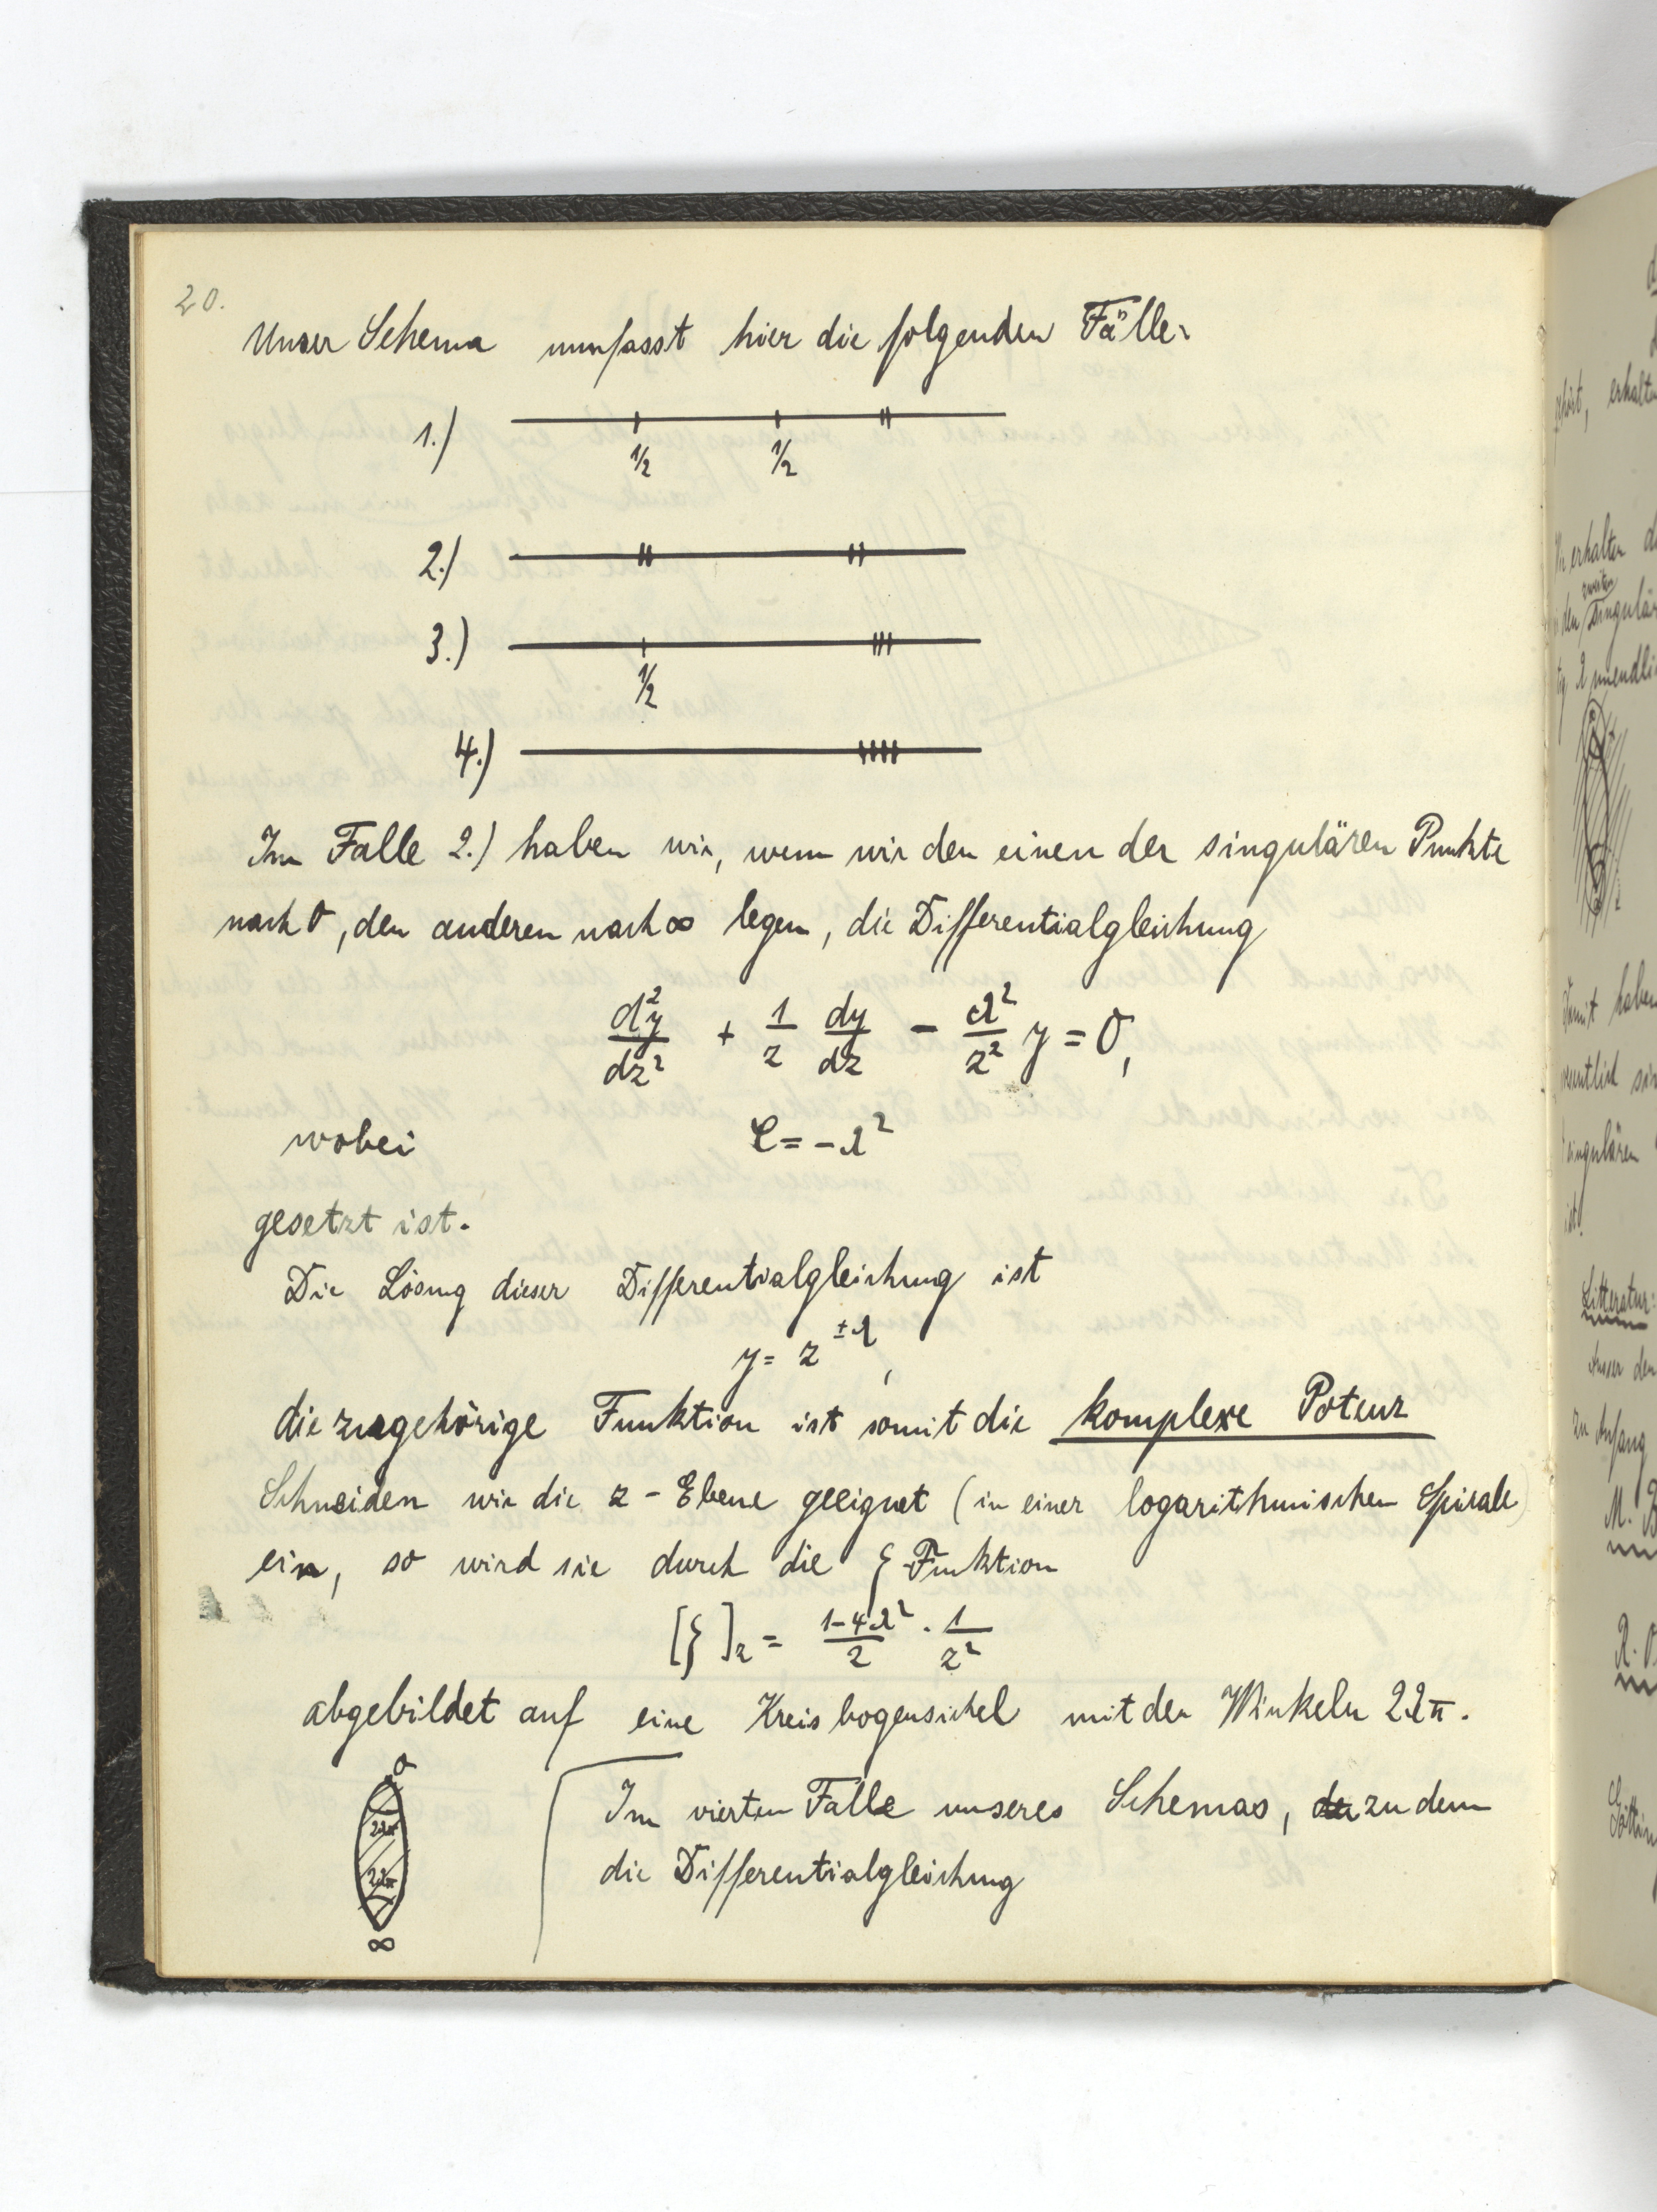 20.
Unser Schema umfasst hier die folgenden Fälle:
1.)
1/2 1/2
2.)
3.)
1/2
4.)
Im Falle 2.) haben wir, wenn wir den einen der singulären Punkte
nach 0, den anderen nach ∞ legen, die Differentialgleichung
d²y/dz² + 1/z dy/dz - λ²/z² y = 0,
wobei C = -λ²
gesetzt ist.
Die Lösung dieser Differentialgleichung ist
y = z^±λ,
die zugehörige Funktion ist somit die komplexe Potenz
Schneiden wir die z-Ebene geeignet (in einer logarithmischen Spirale)
ein, so wird sie durch die ζ Funktion
[ζ]z = (1-4λ²)/2 · 1/z²
abgebildet auf eine Kreisbogensichel mit den Winkeln 2λπ.
0
2λπ
2λπ
∞
Im vierten Falle unseres Schemas, zu dem
die Differentialgleichung
gehört, erhalten
erhalten
zweiten
den singulären
haben
singulären
ist.
Litteratur:
Ausser den
zu Anfang
M.
R.